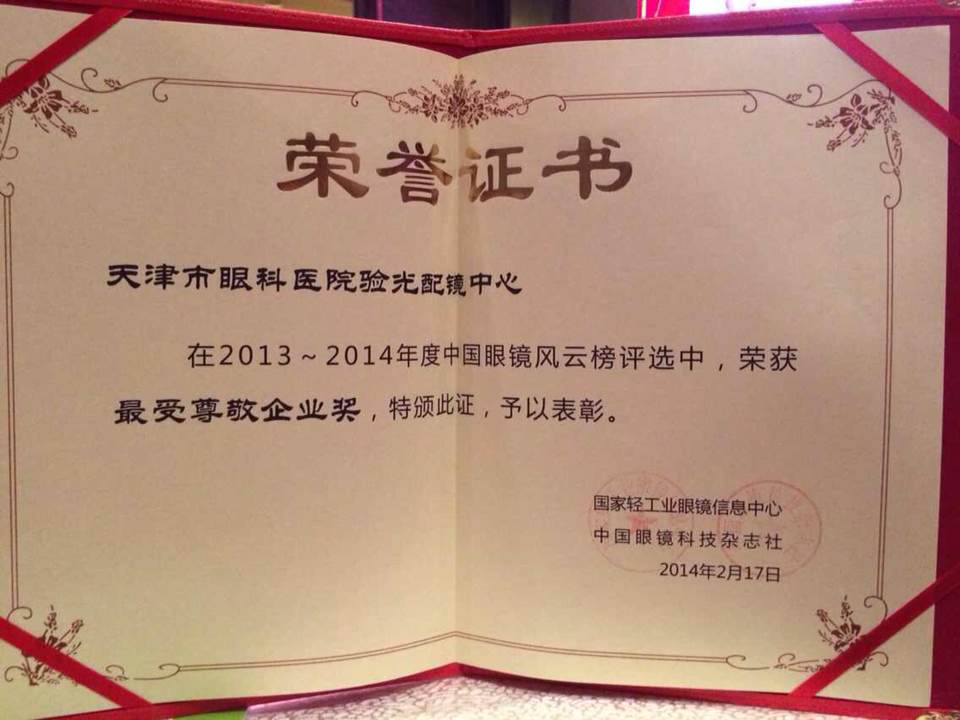 荣誉证书
天津市眼科医院验光配镜中心
在2013～2014年度中国眼镜风云榜评选中，荣获
最受尊敬企业奖，特颁此证，予以表彰。
国家轻工业眼镜信息中心
中国眼镜科技杂志社
2014年2月17日